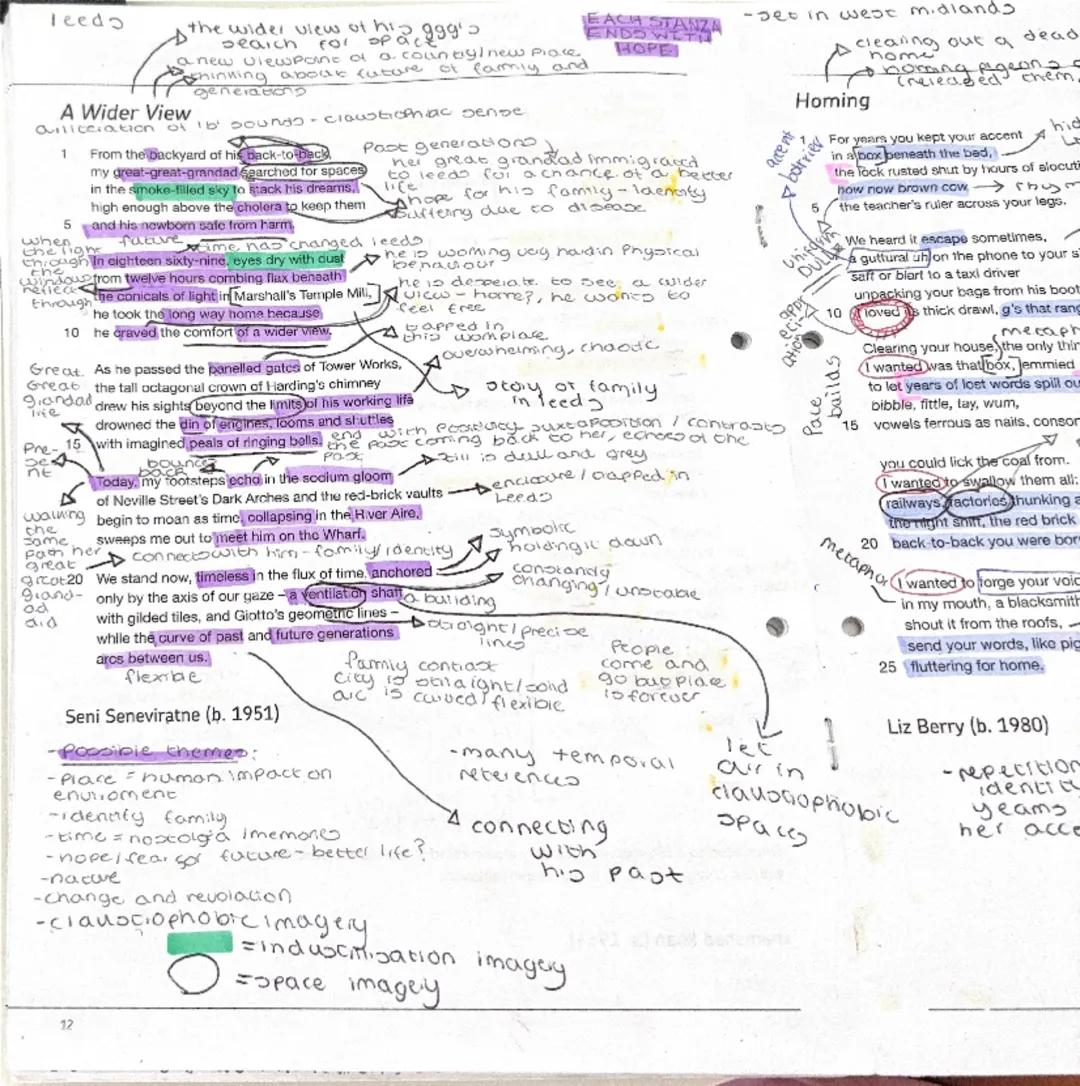 leeds
the wider view of his ggg's
search for space
a new viewpoint of a country/new place
thinking about future of family and
generations
EACH STANZA
ENDS WITH
HOPE
A Wider View
alliteration of 'b' sounds - claustrophic sense
1 From the backyard of his back-to-back,
my great-great-grandad searched for spaces
in the smoke-filled sky to stack his dreams,
high enough above the cholera to keep them
5 and his newborn safe from harm.
past generations
her great grandad immigrated
to leeds for a chance of a better
life
hope for his family - identity
suffering due to disease
when
the light
through
the
window
reflects
through
future
time has changed leeds
In eighteen sixty-nine, eyes dry with dust
from twelve hours combing flax beneath
the conicals of light in Marshall's Temple Mill,
he took the long way home because
10 he craved the comfort of a wider view.
he is working very hard in physical
behaviour
he is desperate to see a wider
view - home?, he wants to
feel free
trapped in
this workplace
overwhelming, chaotic
As he passed the panelled gates of Tower Works,
the tall octagonal crown of Harding's chimney
drew his sights beyond the limits of his working life
drowned the din of engines, looms and shuttles
15 with imagined peals of ringing bells.
Great
Great
grandad
life
story of family
in leeds
end with positivity juxtaposition / contrasts
the past coming back to her, echoes of the
past
Pre-
se
nt
bounces
back
still is dull and grey
Today, my footsteps echo in the sodium gloom
of Neville Street's Dark Arches and the red-brick vaults
begin to moan as time, collapsing in the River Aire,
sweeps me out to meet him on the Wharf.
enclosure / trapped in
Leeds
walking
the
same
path her
great
great
grand-
ad
did
connects with him - family/identity
symbolic
holding it down
constantly
changing / unstable
20 We stand now, timeless in the flux of time, anchored
only by the axis of our gaze – a ventilation shaft
with gilded tiles, and Giotto's geometric lines –
while the curve of past and future generations
arcs between us.
a building
straight / precise
lines
flexible
family contrast
city is straight/solid
arc is curved/flexible
People
come and
go but place
is forever
Seni Seneviratne (b. 1951)
-Possible themes:
-Place = human impact on
enviroment
-identify family
-time = nostolgia /memories
-hope/fear for future - better life?
-nature
-change and revolation
-claustrophobic imagery
= industrilisation imagery
= space imagery
-many temporal
references
connecting
with
his past
let
air in
claustrophobic
spaces
12
-set in west midlands
clearing out a dead
home
homing pigeons
(released them,
Homing
accent
barrier
1 For years you kept your accent
in a box beneath the bed,
the lock rusted shut by hours of elocuti
how now brown cow
5 the teacher's ruler across your legs.
We heard it escape sometimes,
a guttural uh on the phone to your s
saft or blart to a taxi driver
unpacking your bags from his boot
10 I loved its thick drawl, g's that rang
metaph
Clearing your house, the only thin
I wanted was that box, jemmied
to let years of lost words spill ou
bibble, fittle, tay, wum,
15 vowels ferrous as nails, conson
Pace
builds
you could lick the coal from.
I wanted to swallow them all:
railways, factories thunking a
the night shift, the red brick
20 back-to-back you were bor
metaphor
I wanted to forge your voic
in my mouth, a blacksmith
shout it from the roofs,
send your words, like pig
25 fluttering for home.
Liz Berry (b. 1980)
-repetition
identit
yearns
her acce